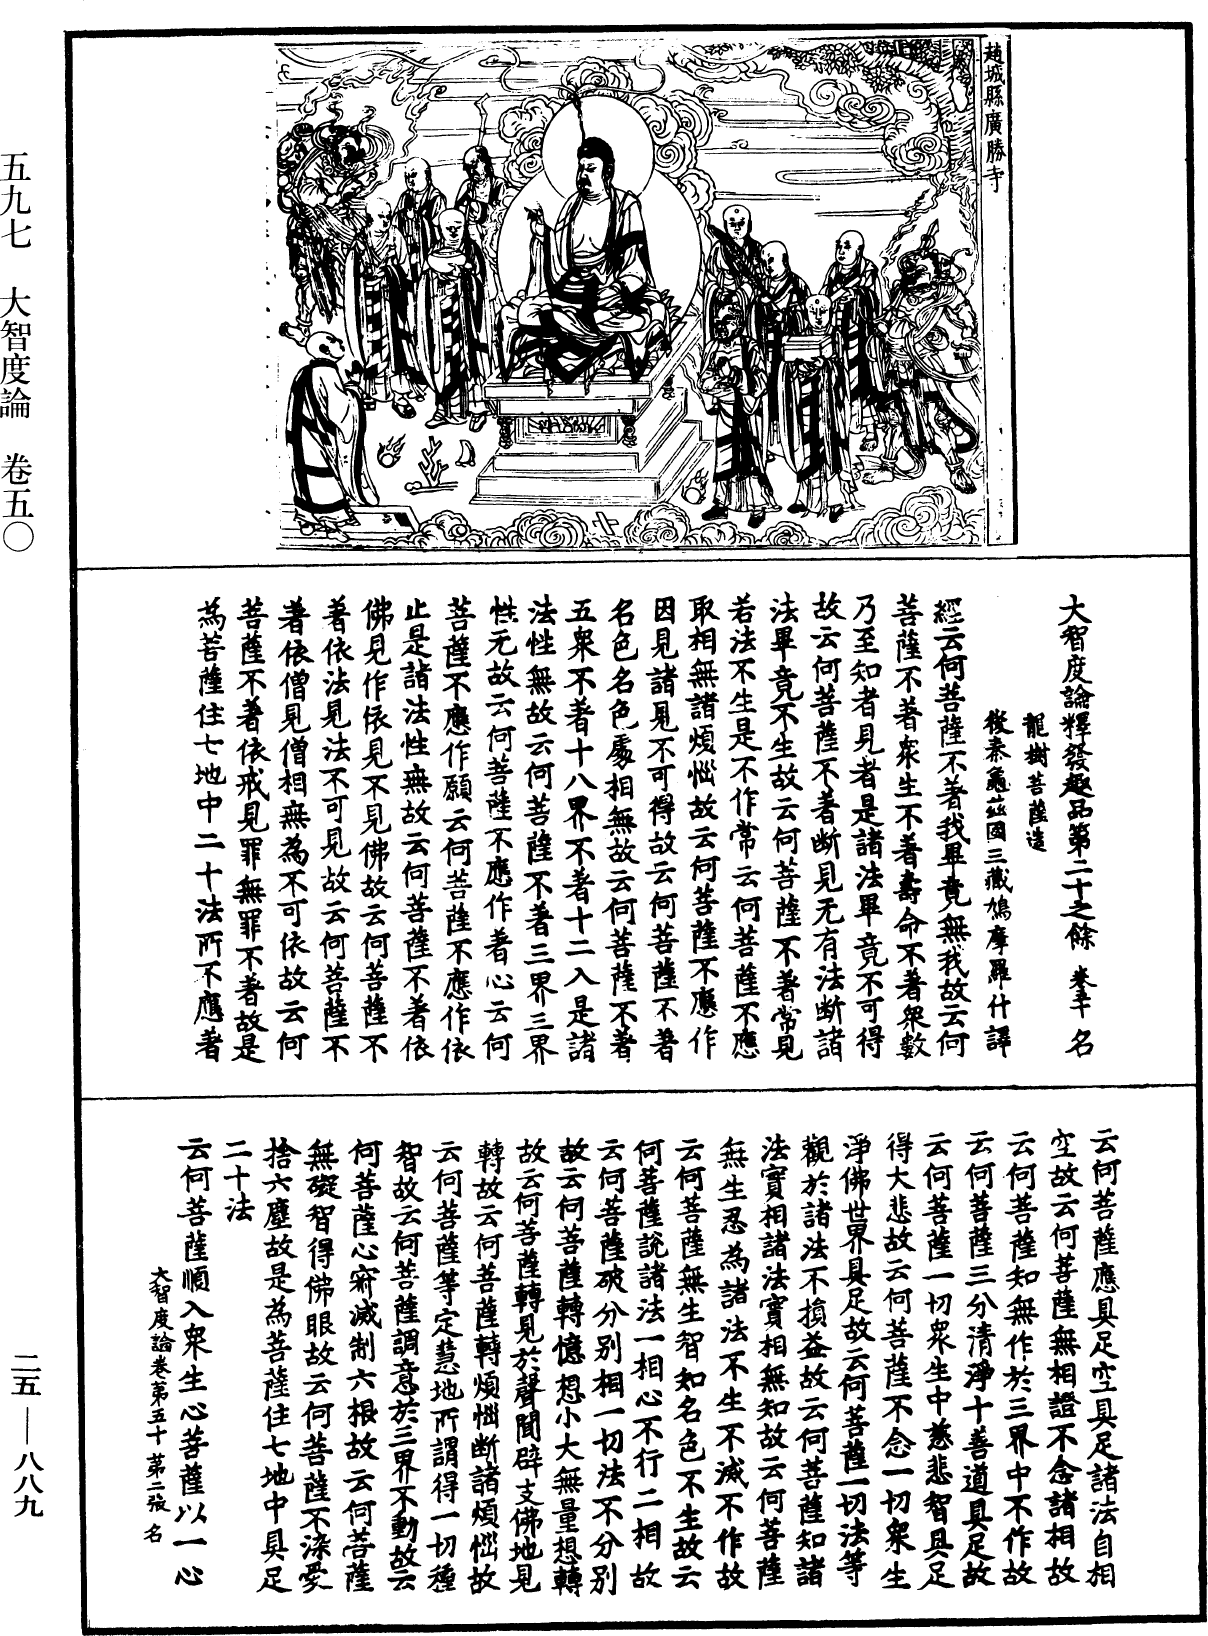 趙城縣廣勝寺
大智度論釋發趣品第二十之餘 卷五十 名
龍樹菩薩造
後秦龜茲國三藏鳩摩羅什譯
經云何菩薩不著我畢竟無我故云何
菩薩不著衆生不著壽命不著衆數
乃至知者見者是諸法畢竟不可得
故云何菩薩不著断見无有法断諸
法畢竟不生故云何菩薩不著常見
若法不生是不作常云何菩薩不應
取相無諸煩惱故云何菩薩不應作
因見諸見不可得故云何菩薩不著
名色名色處相無故云何菩薩不著
五衆不著十八界不著十二入是諸
法性無故云何菩薩不著三界三界
性无故云何菩薩不應作著心云何
菩薩不應作願云何菩薩不應作依
止是諸法性無故云何菩薩不著依
佛見作依見不見佛故云何菩薩不
著依法見法不可見故云何菩薩不
著依僧見僧相無為不可依故云何
菩薩不著依戒見罪無罪不著故是
為菩薩住七地中二十法所不應著
云何菩薩應具足空具足諸法自相
空故云何菩薩無相證不念諸相故
云何菩薩知無作於三界中不作故
云何菩薩三分清淨十善道具足故
云何菩薩一切衆生中慈悲智具足
得大悲故云何菩薩不念一切衆生
淨佛世界具足故云何菩薩一切法等
觀於諸法不損益故云何菩薩知諸
法實相諸法實相無知故云何菩薩
無生忍為諸法不生不滅不作故
云何菩薩無生智知名色不生故云
何菩薩說諸法一相心不行二相故
云何菩薩破分別相一切法不分別
故云何菩薩轉憶想小大無量想轉
故云何菩薩轉見於聲聞辟支佛地見
轉故云何菩薩轉煩惱断諸煩惱故
云何菩薩等定慧地所謂得一切種
智故云何菩薩調意於三界不動故云
何菩薩心寂滅制六根故云何菩薩
無礙智得佛眼故云何菩薩不染愛
捨六塵故是為菩薩住七地中具足
二十法
云何菩薩順入衆生心菩薩以一心
大智度論卷第五十 第二張 名
五九七 大智度論 卷五〇
二五——八八九